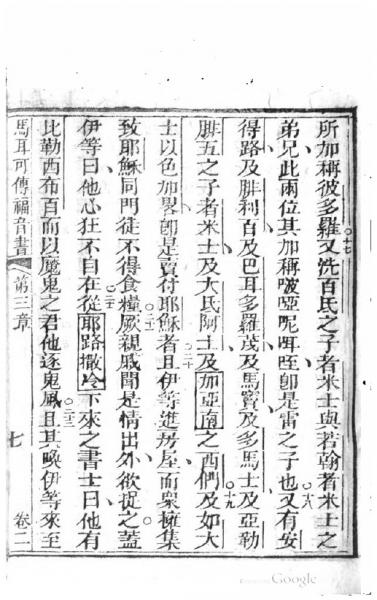 所加稱彼多羅又洗百氏之子者米士與若翰者米士之
弟兄此兩位其加稱㖠啞呢咡咥卽是雷之子也又有安
得路及腓利百及巴耳多羅茂及馬竇及多馬士及亞勒
腓五之子者米士及大氏阿士及加亞南之西們及如大
士以色加畧卽是賣付耶穌者且伊等進房屋而衆擁集
致耶穌同門徒不得食糧厥親戚聞是情出外欲捉之蓋
伊等曰他心狂不自在從耶路撒冷下來之書士曰他有
比勒西布百而以魔鬼之君他逐鬼風且其喚伊等來至
馬耳可傳福音書 第三章 七 卷二
十七
十八
十九
二十
二十一
二十二
二十三
Google